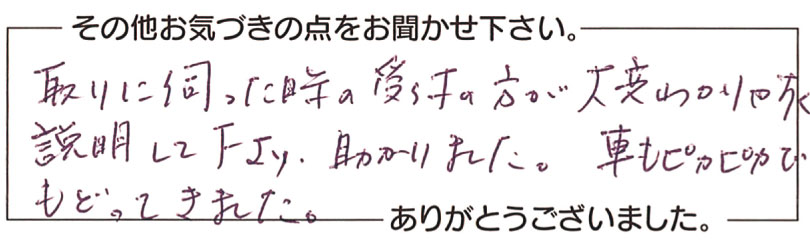 その他お気づきの点をお聞かせ下さい。
取りに伺った時の受付の方が大変わかりやすく
説明して下さり、助かりました。車もピカピカで
もどってきました。
ありがとうございました。